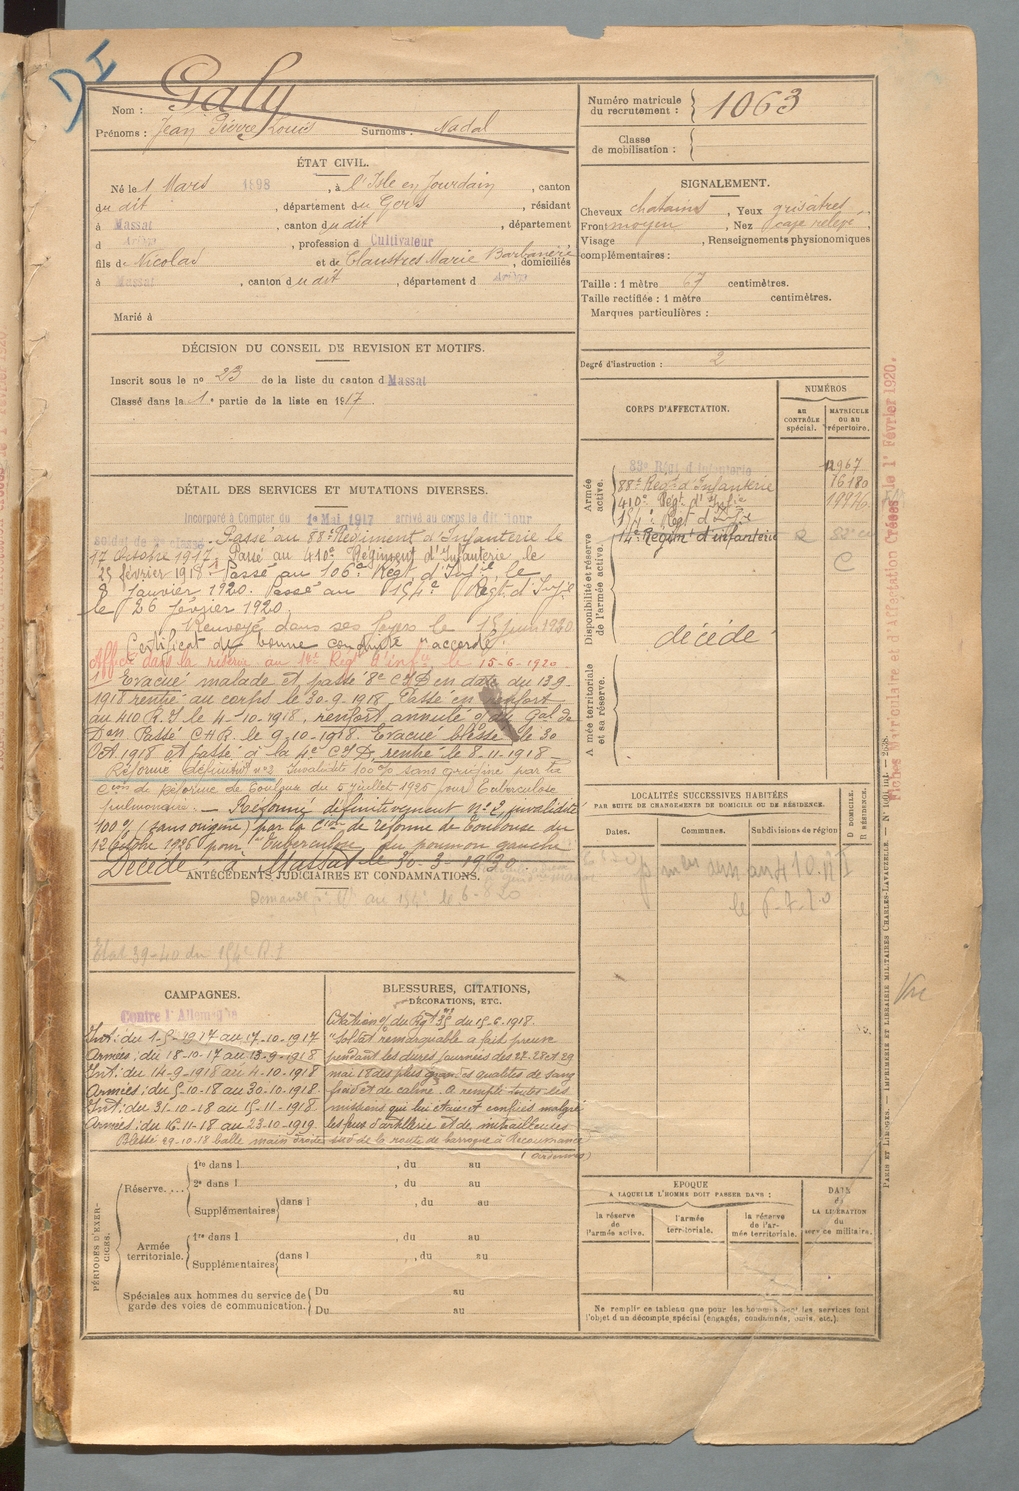 DI
Nom : Galy
Prénoms : Jean Pierre Louis Surnoms : Nadal
ÉTAT CIVIL.
Né le 1 Mars 1898, à l'Isle en Jourdain, canton
du dit, département du Gers, résidant
à Massat, canton du dit, département
d Ariège, profession d Cultivateur
fils de Nicolas et de Claustres Marie Barbanère, domiciliés
à Massat, canton du dit, département d Ariège
Marié à
DÉCISION DU CONSEIL DE REVISION ET MOTIFS.
Inscrit sous le nº 23 de la liste du canton d Massat
Classé dans la 1e partie de la liste en 1917.
DÉTAIL DES SERVICES ET MUTATIONS DIVERSES.
Incorporé à Compter du 1er Mai 1917 arrivé au corps le dit jour
soldat de 2e classe. Passé au 88e Régiment d'Infanterie le
17 Octobre 1917. Passé au 410e Régiment d'Infanterie le
25 février 1918. Passé au 106e Régt d'Infie le
8 Janvier 1920. Passé au 154e Régt d'Infie
le 26 février 1920
Renvoyé dans ses foyers le 15 juin 1920.
Certificat de bonne conduite "accordé"
Affecté dans la réserve au 14e Rég. d'infie le 15-6-1920
Evacué malade et passé 8e C.I.D en date du 13.9.
1918 rentré au corps le 30-9-1918. Passé en renfort
au 410 R.I le 4-10-1918, renfort annulé o/ du Gal de
Don Passé C.H.R. le 9-10-1918. Evacué blessé le 30
Oct. 1918 et passé à la 4e C.I.D, rentré le 8-11-1918
Réformé définitivt nº2 Invalidité 100 % sans origine par la
Cion de Réforme de Toulouse du 5 Juillet 1926 pour Tuberculose
pulmonaire. — Réformé définitivement Nº 2, invalidité
100 % (sans origine) par la Cion de réforme de Toulouse du
12 Octobre 1926 pour "Tuberculose du poumon gauche
Décédé à Massat le 30-3-1930
ANTÉCÉDENTS JUDICIAIRES ET CONDAMNATIONS.
au 154e le 6-8 20
Etat 39-40 du 154e R.I
CAMPAGNES.
Contre l'Allemagne
Int: du 1-5-1917 au 17-10-1917
Armées: du 18-10-17 au 13-9-1918
Int: du 14-9-1918 au 4-10-1918
Armées: du 5-10-18 au 30-10-1918.
Int: du 31-10-18 au 15-11-1918
Armées: du 16-11-18 au 23-10-1919.
BLESSURES, CITATIONS,
DÉCORATIONS, ETC.
Citation o/ du Régt nº 35 du 15-6-1918.
"Soldat remarquable a fait preuve
pendant les dures journées des 27-28 et 29
mai 18 des plus grandes qualités de sang
froid et de calme. A rempli toutes les
missions qui lui étaient confiées malgré
les feux d'artillerie et de mitrailleuses
Blessé 29-10-18 balle main droite sud de la route de
(Ardennes)
PÉRIODES D'EXERCICES.
Réserve....
1re dans l , du au
2e dans l , du au
Supplémentaires dans l , du au
Armée territoriale.
1re dans l , du au
Supplémentaires dans l , du au
Spéciales aux hommes du service de
garde des voies de communication.
Du au
Du au
Numéro matricule du recrutement : 1063
Classe de mobilisation :
SIGNALEMENT.
Cheveux chatains, Yeux grisâtres,
Front moyen, Nez cave relevé,
Visage , Renseignements physionomiques
complémentaires :
Taille : 1 mètre 67 centimètres.
Taille rectifiée : 1 mètre centimètres.
Marques particulières :
Degré d'instruction : 2
CORPS D'AFFECTATION.
NUMÉROS
au CONTRÔLE spécial.
MATRICULE ou au répertoire.
Armée active.
83e Régt d'Infanterie 12967
88e Régt d'Infanterie 16180
410e Régt d'Infie 19976
154e Régt d'Infie
Disponibilité et réserve de l'armée active.
14e Régimt d'infanterie
C
décédé
Armée territoriale et sa réserve.
LOCALITÉS SUCCESSIVES HABITÉES
PAR SUITE DE CHANGEMENTS DE DOMICILE OU DE RÉSIDENCE.
Dates. Communes. Subdivisions de région
D DOMICILE.
R RÉSIDENCE.
au 410 R I
le 6-7-20
EPOQUE
A LAQUELLE L'HOMME DOIT PASSER DANS :
la réserve de l'armée active.
l'armée territoriale.
la réserve de l'armée territoriale.
DATE de LA LIBÉRATION du service militaire.
Ne remplir ce tableau que pour les hommes dont les services font
l'objet d'un décompte spécial (engagés, condamnés, omis, etc.).
Fiches Matriculaire et d'Affectation Créées le 1er Février 1920.
PARIS ET LIMOGES. — IMPRIMERIE ET LIBRAIRIE MILITAIRES CHARLES-LAVAUZELLE.
Vu